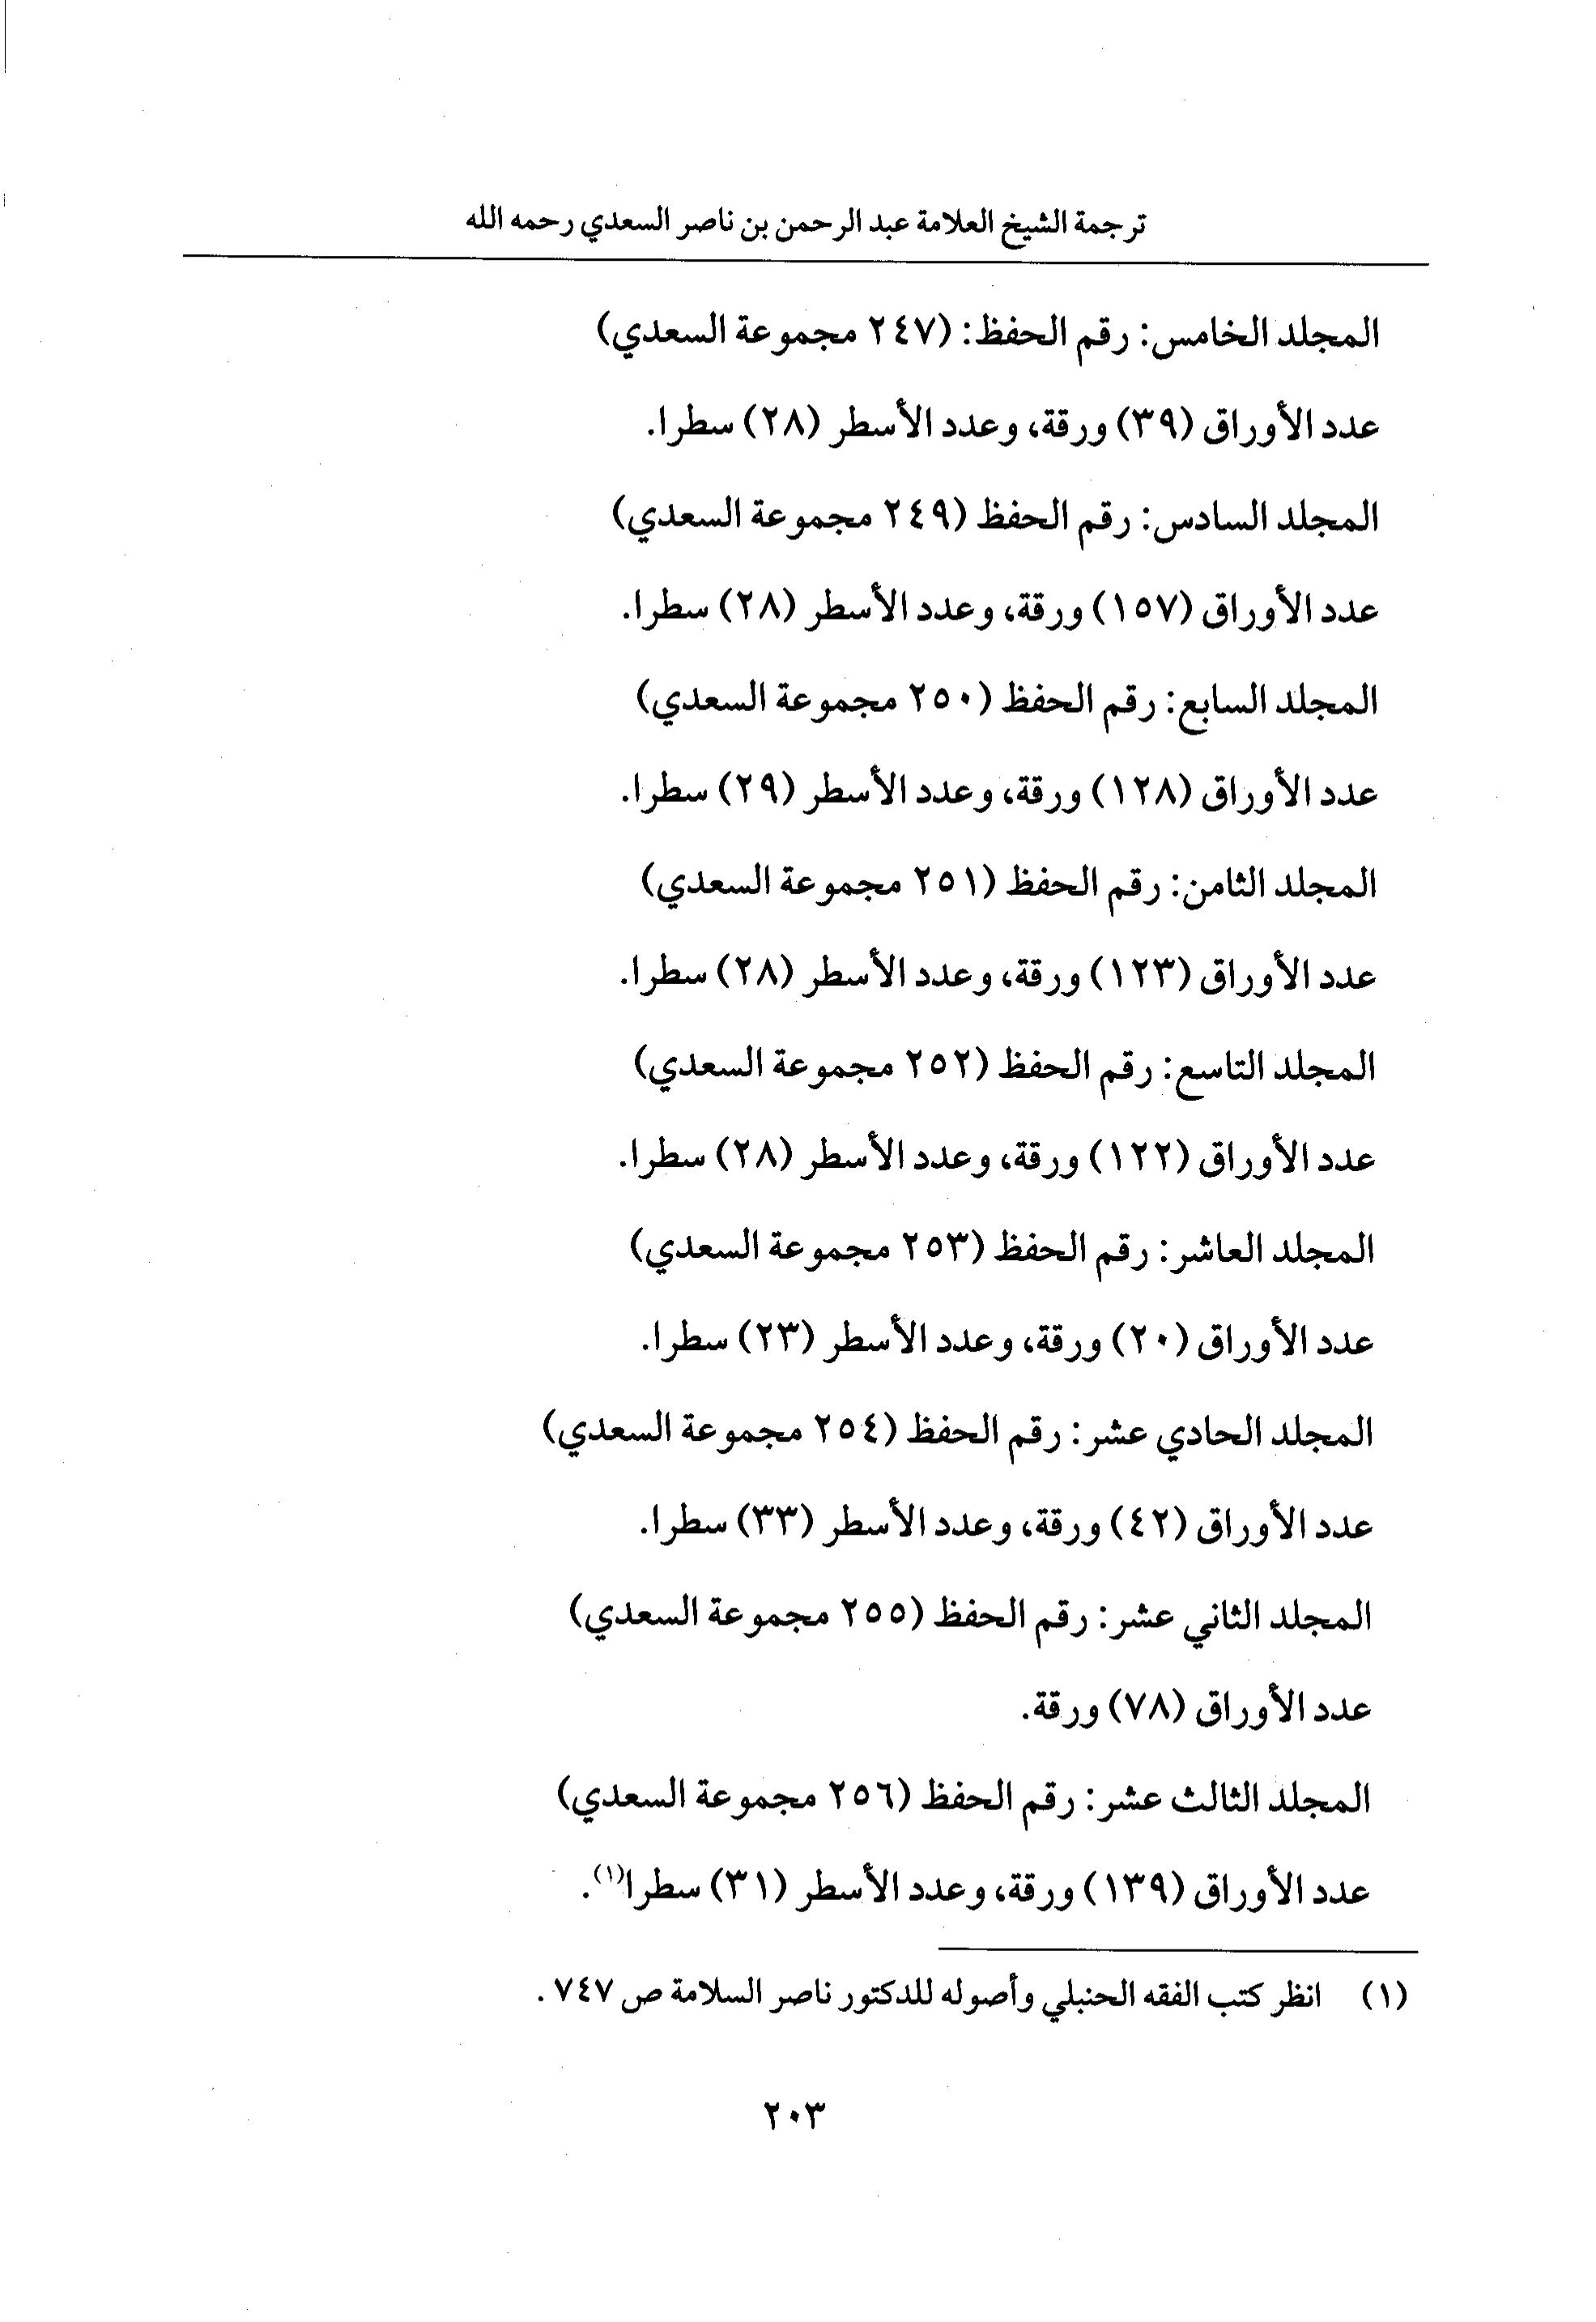 ترجمة الشيخ العلامة عبد الرحمن بن ناصر السعدي رحمه الله
المجلد الخامس: رقم الحفظ: (٢٤٧ مجموعة السعدي)
عدد الأوراق (٣٩) ورقة، وعدد الأسطر (٢٨) سطرا.
المجلد السادس: رقم الحفظ (٢٤٩ مجموعة السعدي)
عدد الأوراق (١٥٧) ورقة، وعدد الأسطر (٢٨) سطرا.
المجلد السابع: رقم الحفظ (٢٥٠ مجموعة السعدي)
عدد الأوراق (١٢٨) ورقة، وعدد الأسطر (٢٩) سطرا.
المجلد الثامن: رقم الحفظ (٢٥١ مجموعة السعدي)
عدد الأوراق (١٢٣) ورقة، وعدد الأسطر (٢٨) سطرا.
المجلد التاسع: رقم الحفظ (٢٥٢ مجموعة السعدي)
عدد الأوراق (١٢٢) ورقة، وعدد الأسطر (٢٨) سطرا.
المجلد العاشر: رقم الحفظ (٢٥٣ مجموعة السعدي)
عدد الأوراق (٢٠) ورقة، وعدد الأسطر (٢٣) سطرا.
المجلد الحادي عشر: رقم الحفظ (٢٥٤ مجموعة السعدي)
عدد الأوراق (٤٢) ورقة، وعدد الأسطر (٣٣) سطرا.
المجلد الثاني عشر: رقم الحفظ (٢٥٥ مجموعة السعدي)
عدد الأوراق (٧٨) ورقة.
المجلد الثالث عشر: رقم الحفظ (٢٥٦ مجموعة السعدي)
عدد الأوراق (١٣٩) ورقة، وعدد الأسطر (٣١) سطرا(١).
(١) انظر كتب الفقه الحنبلي وأصوله للدكتور ناصر السلامة ص ٧٤٧ .
٢٠٣